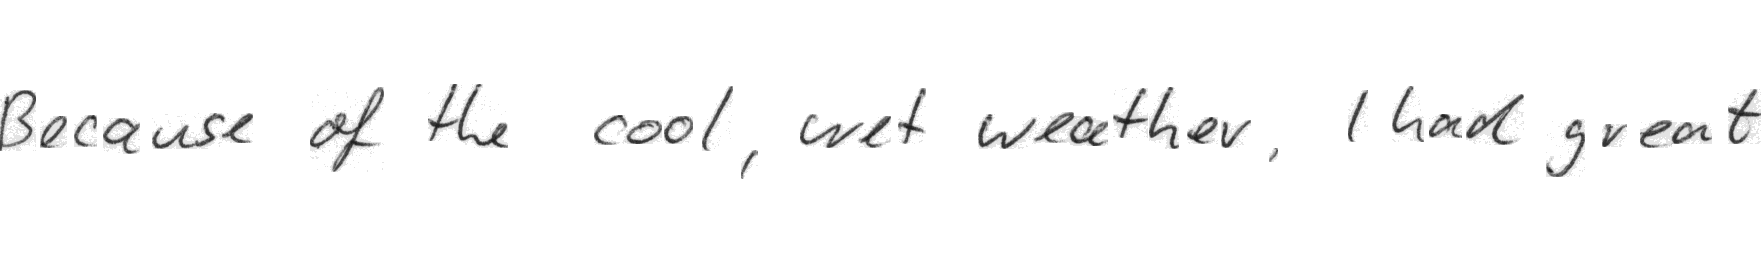 Because of the cool, wet weather, I had great